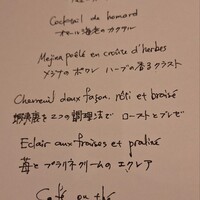 Cocktail de homard
オマール海老のカクテル
Mejina poêlé en croûte d'herbes
メジナのポワレ ハーブの香るクラスト
Chevreuil deux façon, rôti et braisé
蝦夷鹿を二つの調理法で ローストとブレゼ
Eclair aux fraises et praliné
苺とプラリネクリームの エクレア
Café ou thé